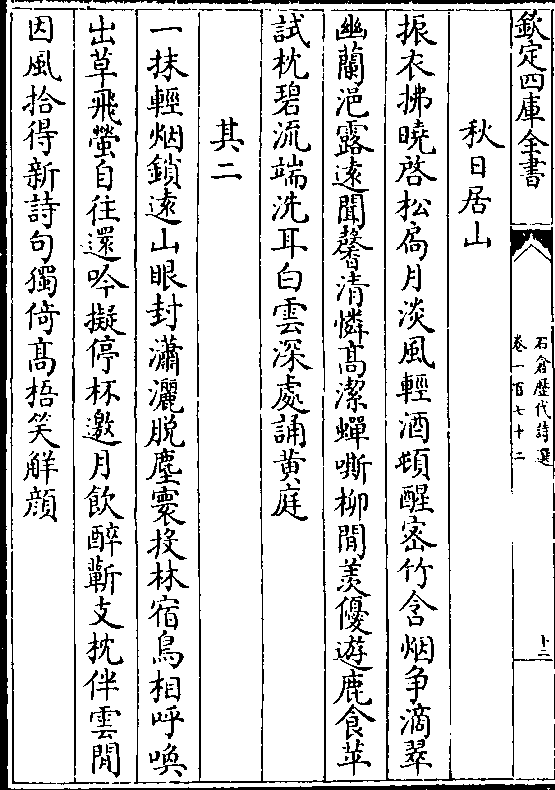 欽定四庫全書
石倉歷代詩選
卷一百七十二
十二
秋日居山
振衣拂曉啓松扃月淡風輕酒頓醒宻竹含烟争滴翠
幽蘭浥露逺聞馨清憐髙潔蟬嘶柳閒羨優遊鹿食苹
試枕碧流端洗耳白雲深處誦黄庭
其二
一抹輕烟鎖逺山眼封瀟灑脱塵寰投林宿鳥相呼喚
出草飛螢自往還吟擬停杯邀月飲醉蘄支枕伴雲閒
因風拾得新詩句獨倚髙梧笑解顔